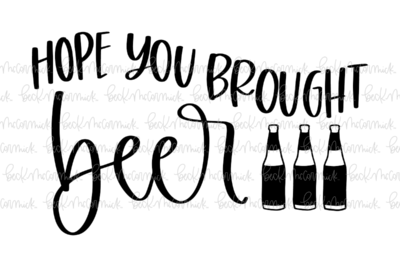 HOPE YOU BROUGHT
beer